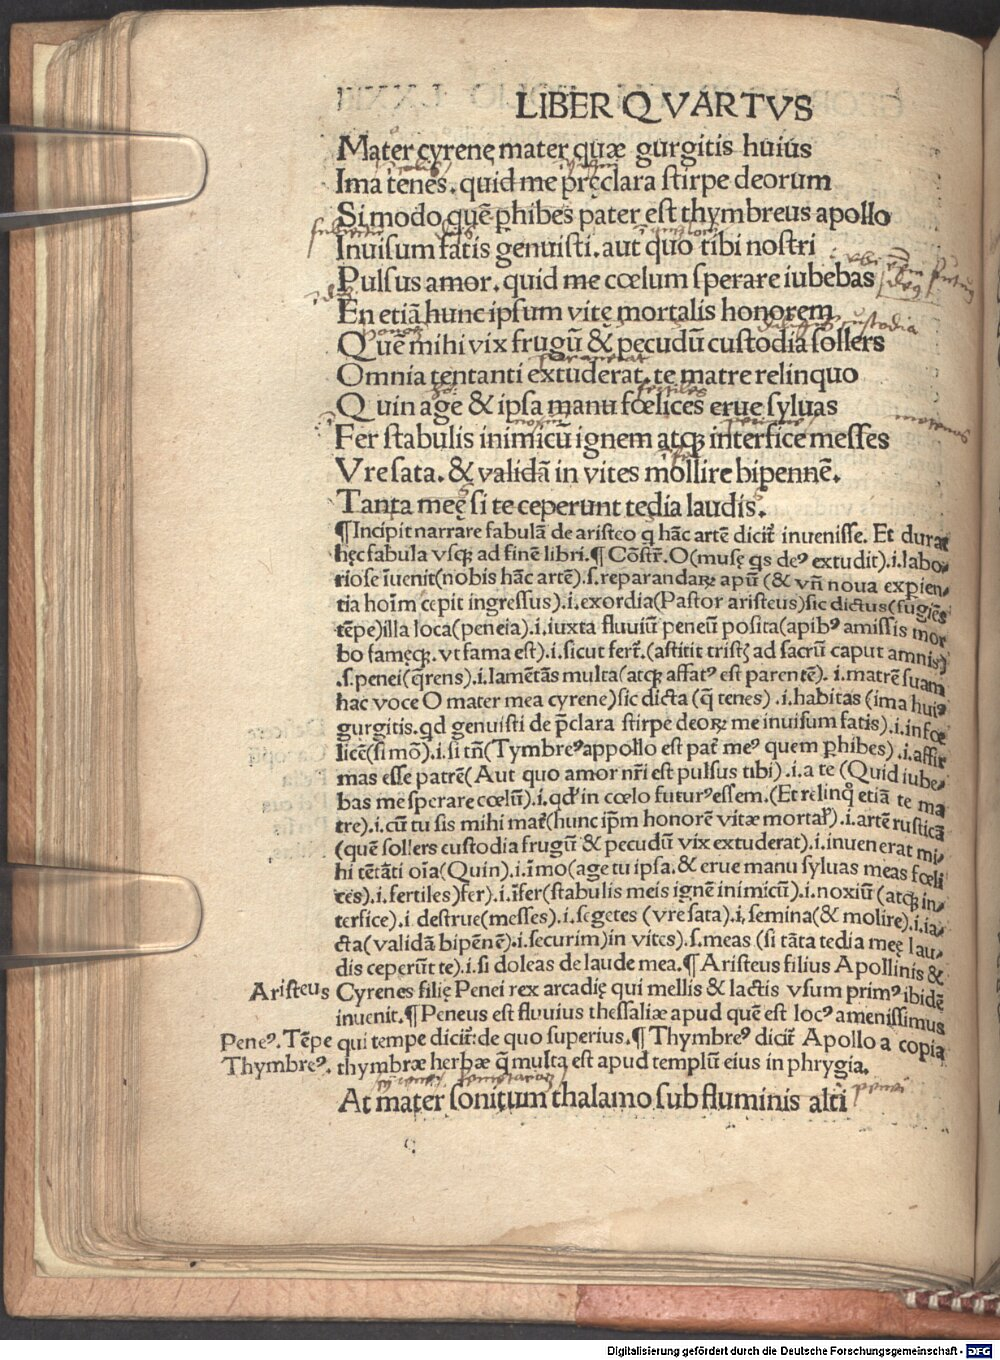 LIBER QVARTVS
Mater cyrene mater quæ gurgitis huius
Ima tenes. quid me pręclara stirpe deorum
Si modo quē phibes pater est thymbreus apollo
Inuisum fatis genuisti. aut quo tibi nostri
Pulsus amor. quid me cœlum sperare iubebas
En etiā hunc ipsum vitę mortalis honorem
Quē mihi vix frugū & pecudū custodia sollers
Omnia tentanti extuderat. te matre relinquo
Quin age & ipsa manu fœlices erue syluas
Fer stabulis inimicū ignem atqꝫ interfice messes
Vre sata. & validā in vites mollire bipennē.
Tanta meę si te ceperunt tędia laudis.
¶Incipit narrare fabulā de aristeo q hāc artē dicit̄ inuenisse. Et durat
hęc fabula vsqꝫ ad finē libri.¶ Cōstr̄. O(musę qs deꝰ extudit).i.labo
riose īuenit(nobis hāc artē).s.reparandaꝝ apū (& vn̄ noua exp̱ien
tia hoīm cepit ingressus).i.exordia(Pastor aristeus)sic dictus(fugiēs
tēpe)illa loca(peneia).i.iuxta fluuiū peneū posita(apibꝰ amissis mor
bo famęqꝫ. vt fama est).i.sicut fert̄.(astitit tristꝭ ad sacrū caput amnis)
.s.penei(q̄rens).i.lamētās multa(atqꝫ affatꝰ est parentē). i.matrē suam
hac voce O mater mea cyrene)sic dicta (q̄ tenes) .i.habitas (ima huiꝰ
gurgitis.qd genuisti de p̄clara stirpe deoꝝ me inuisum fatis).i.infœ
licē(si mō).i.si tn̄(Tymbreꝰ appollo est pat̄ meꝰ quem p̱hibes) .i.affir
mas esse patrē(Aut quo amor nr̄i est pulsus tibi).i.a te (Quid iube
bas me sperare cœlū).i.qd' in cœlo futurꝰ essem.(Et relinq̄ etiā te ma
tre).i.cū tu sis mihi mat̄(hunc ip̄m honorē vitæ mortal̄).i.artē rusticā
(quē sollers custodia frugū & pecudū vix extuderat).i.inuenerat mi
hi tētāti oīa(Quin).i.īmo(age tu ipsa.& erue manu syluas meas fœli
ces).i.fertiles)fer).i.īfer(stabulis meis ignē inimicū).i.noxiū (atqꝫ in
terfice).i destrue(messes).i.segetes (vre sata).i,semina(& molire).i.ia
cta(validā bipēnē).i.securim)in vites).s.meas (si tāta tedia meę lau
dis ceperūt te).i.si doleas de laude mea.¶ Aristeus filius Apollinis &
Aristeus Cyrenes filię Penei rex arcadię qui mellis & lactis vsum primꝰ ibidē
inuenit.¶ Peneus est fluuius thessaliæ apud quē est locꝰ amenissimus
Peneꝰ. Tēpe qui tempe dicit̄:de quo superius.¶ Thymbreꝰ dicit̄ Apollo a copia
Thymbreꝰ. thymbræ herbæ q̄ multa est apud templū eius in phrygia.
At mater sonitum thalamo sub fluminis alti
Digitalisierung gefördert durch die Deutsche Forschungsgemeinschaft - DFG